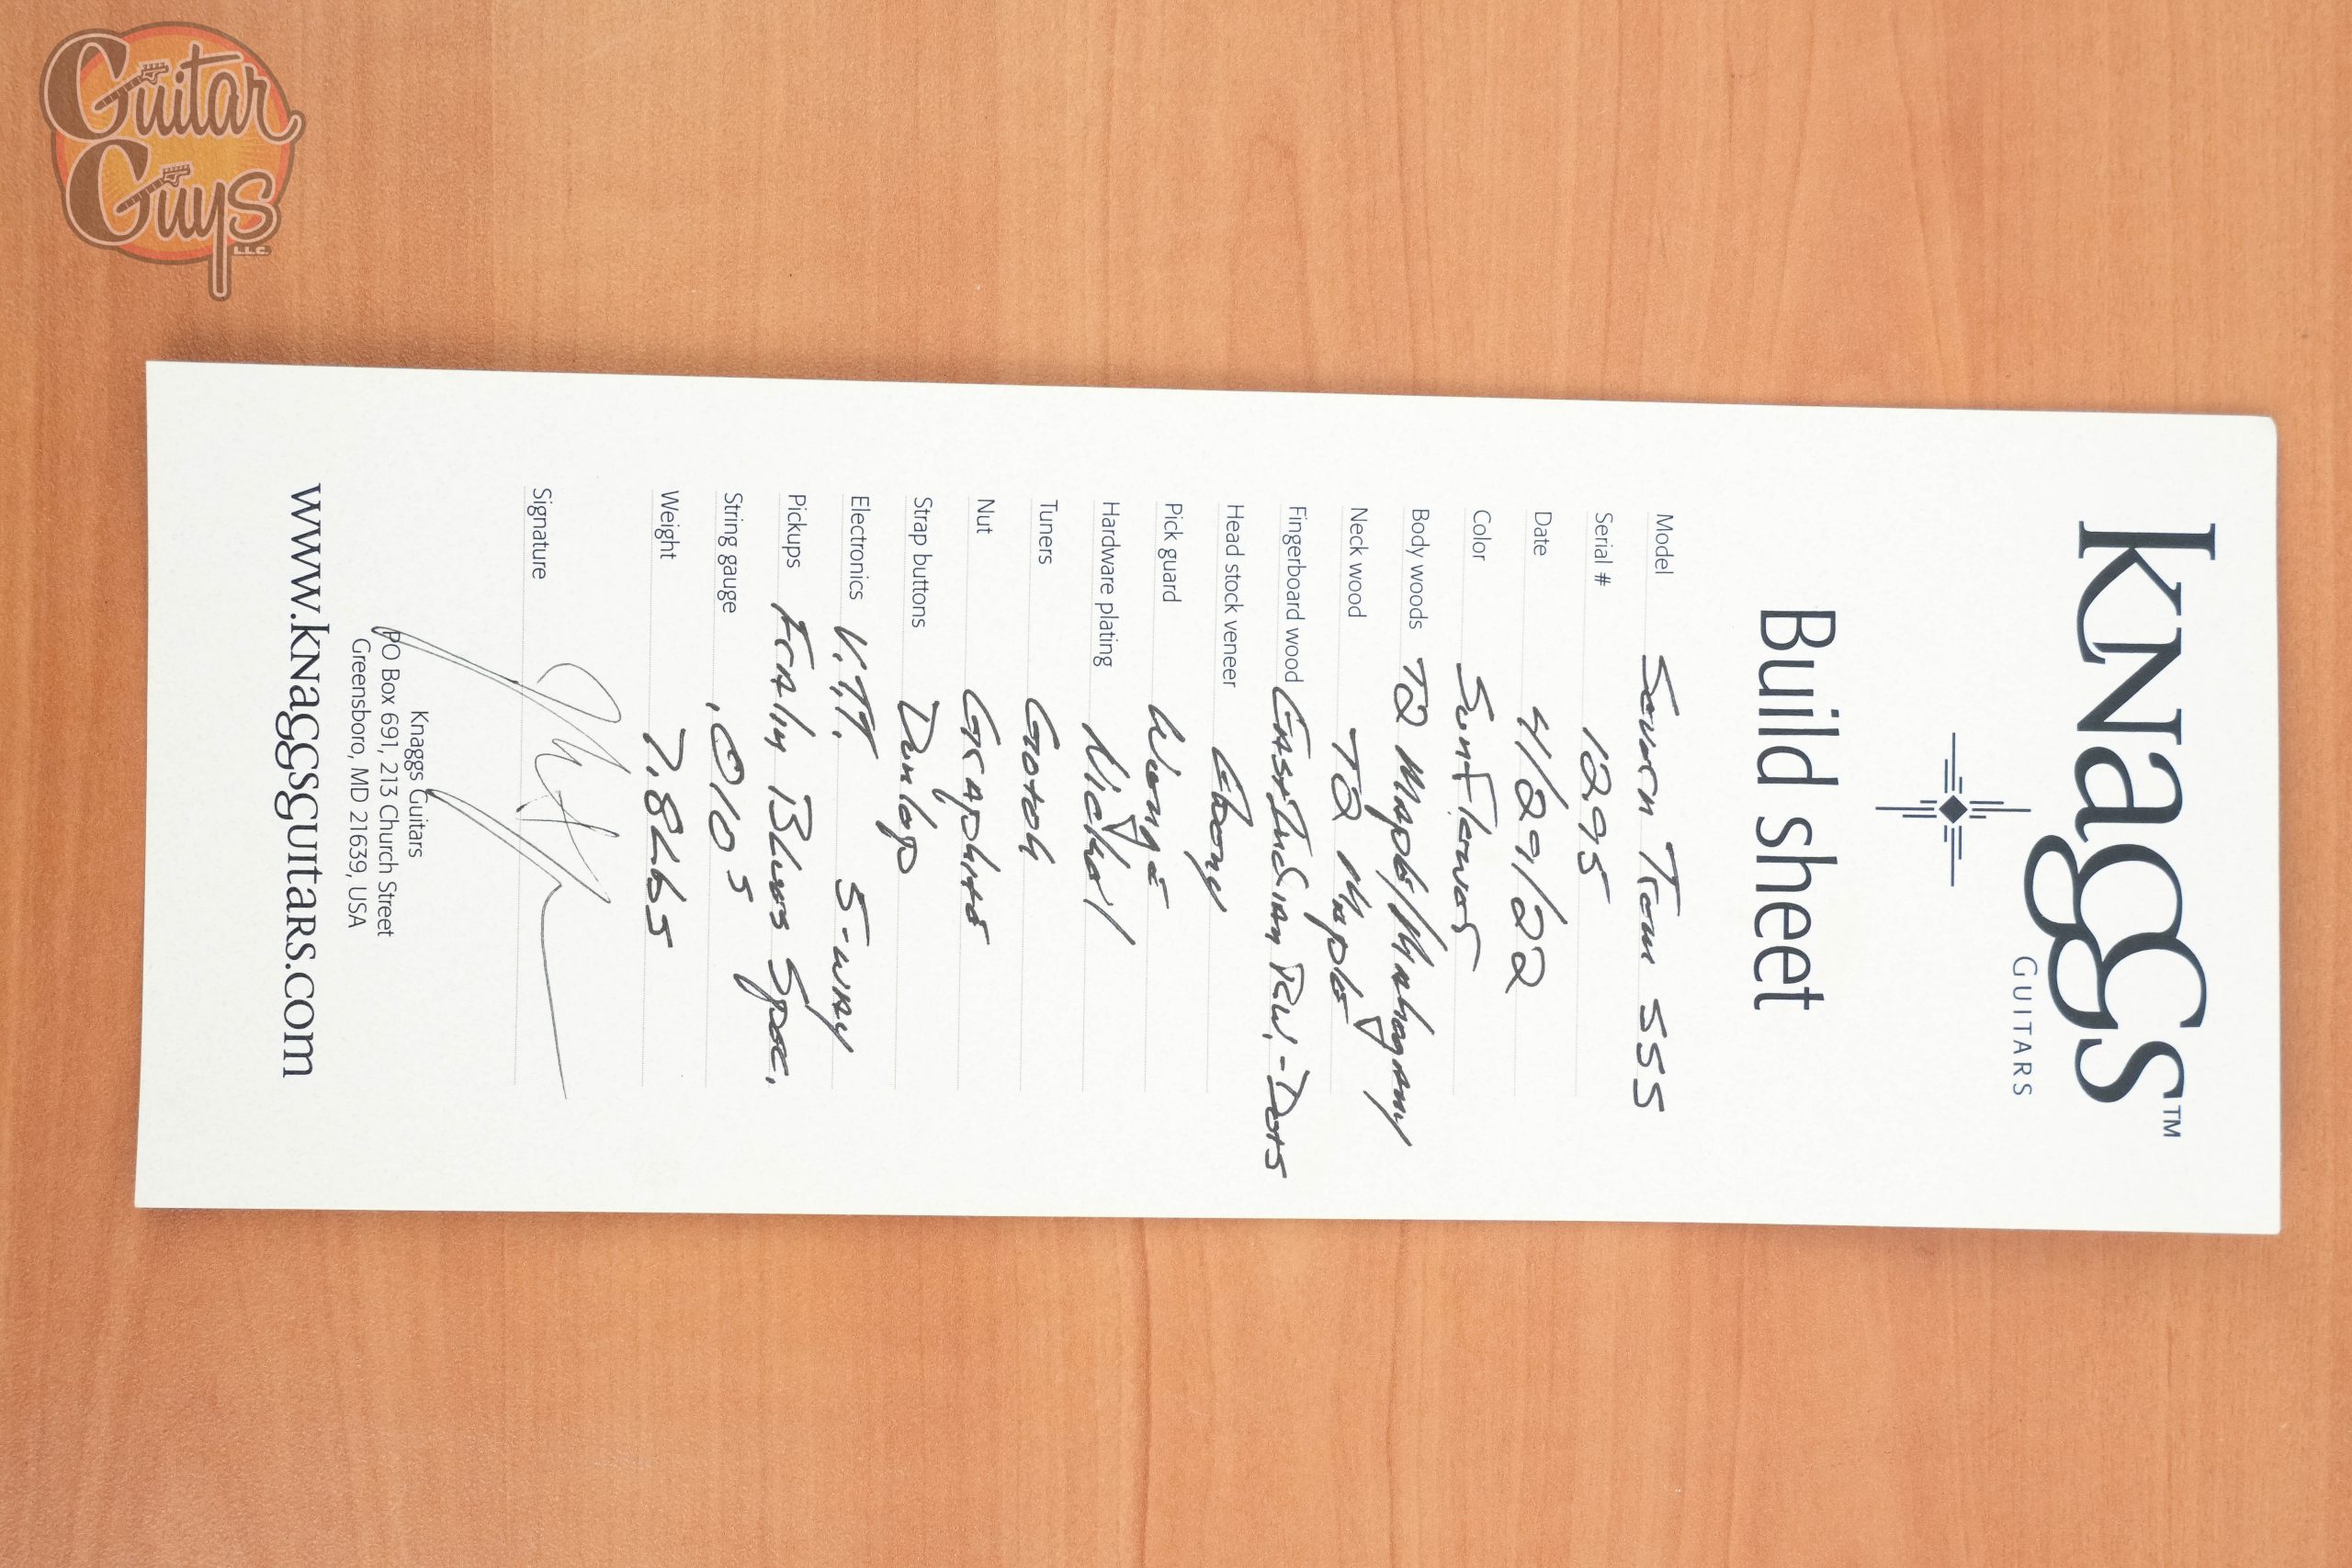 Guitar
Guys
L.L.C.
Knaggs™
GUITARS
Build sheet
Model Severn Trem SSS
Serial # 1295
Date 4/29/22
Color Sunflower
Body woods T2 Maple/Mahogany
Neck wood T2 Maple
Fingerboard wood East Indian R.W.-Dots
Head stock veneer Ebony
Pick guard Wenge
Hardware plating Nickel
Tuners Gotoh
Nut Graphite
Strap buttons Dunlop
Electronics V.T.T. 5-way
Pickups Fraly Blues Spec.
String gauge .010's
Weight 7.8Lbs
Signature
Knaggs Guitars
PO Box 691, 213 Church Street
Greensboro, MD 21639, USA
www.knaggsguitars.com